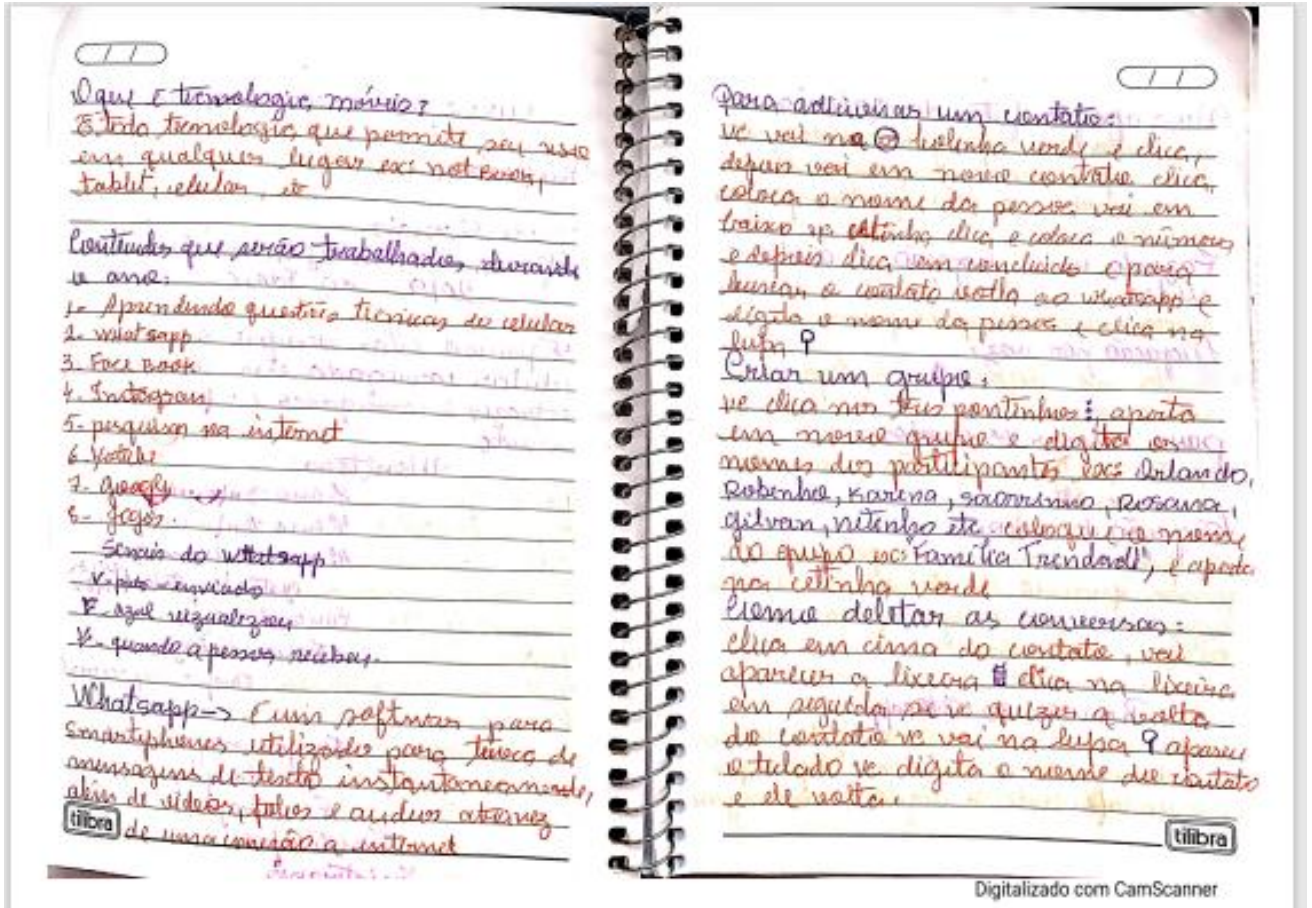 O que é tecnologia móveis?
É todo tecnologia que permite seu uso
em qualquer lugar ex: not Book,
tablet, celular, etc
Conteudos que serão trabalhados durante
o ano:
1- Aprendendo questões tecnicas do celular
2. whatsapp
3. Face Book
4. Instagran
5- pesquisar na internet
6. Yotube
7. google
8- Jogos.
Senais do whatsapp
V- preto - enviado
V- azul vizualizou
V- quando a pessoa recebeu.
Whatsapp-> É um software para
smartphones utilizado para troca de
mensagens de texto instantaneamente,
além de videos, fotos e audios atravez
de uma conexão a internet
tilibra
Para adicionar um contato:
vc vai na bolinha verde e clica,
depois vai em novo contato clica,
coloca o nome da pessoa vai em
baixo na cetinha clica e coloca o número
e depois clica em concluido e para
buscar o contato volta ao whatsapp e
digita o nome da pessoa e clica na
lupa
Criar um grupo:
vc clica nos três pontinhos :, aperta
em novo grupo e digita os
nomes dos participantes ex: Orlando,
Robenho, Karina, Rosana,
gilvan, nitinho etc, coloque o nome
do grupo ex: Família Trendade", e aperta
na cetinha verde
Como deletar as conversas:
clica em cima do contato, vai
aparecer a lixeira clica na lixeira
em seguida, se vc quizer a volta
do contato vc vai na lupa aparece
o teclado vc digita o nome do contato
e ele volta.
tilibra
Digitalizado com CamScanner